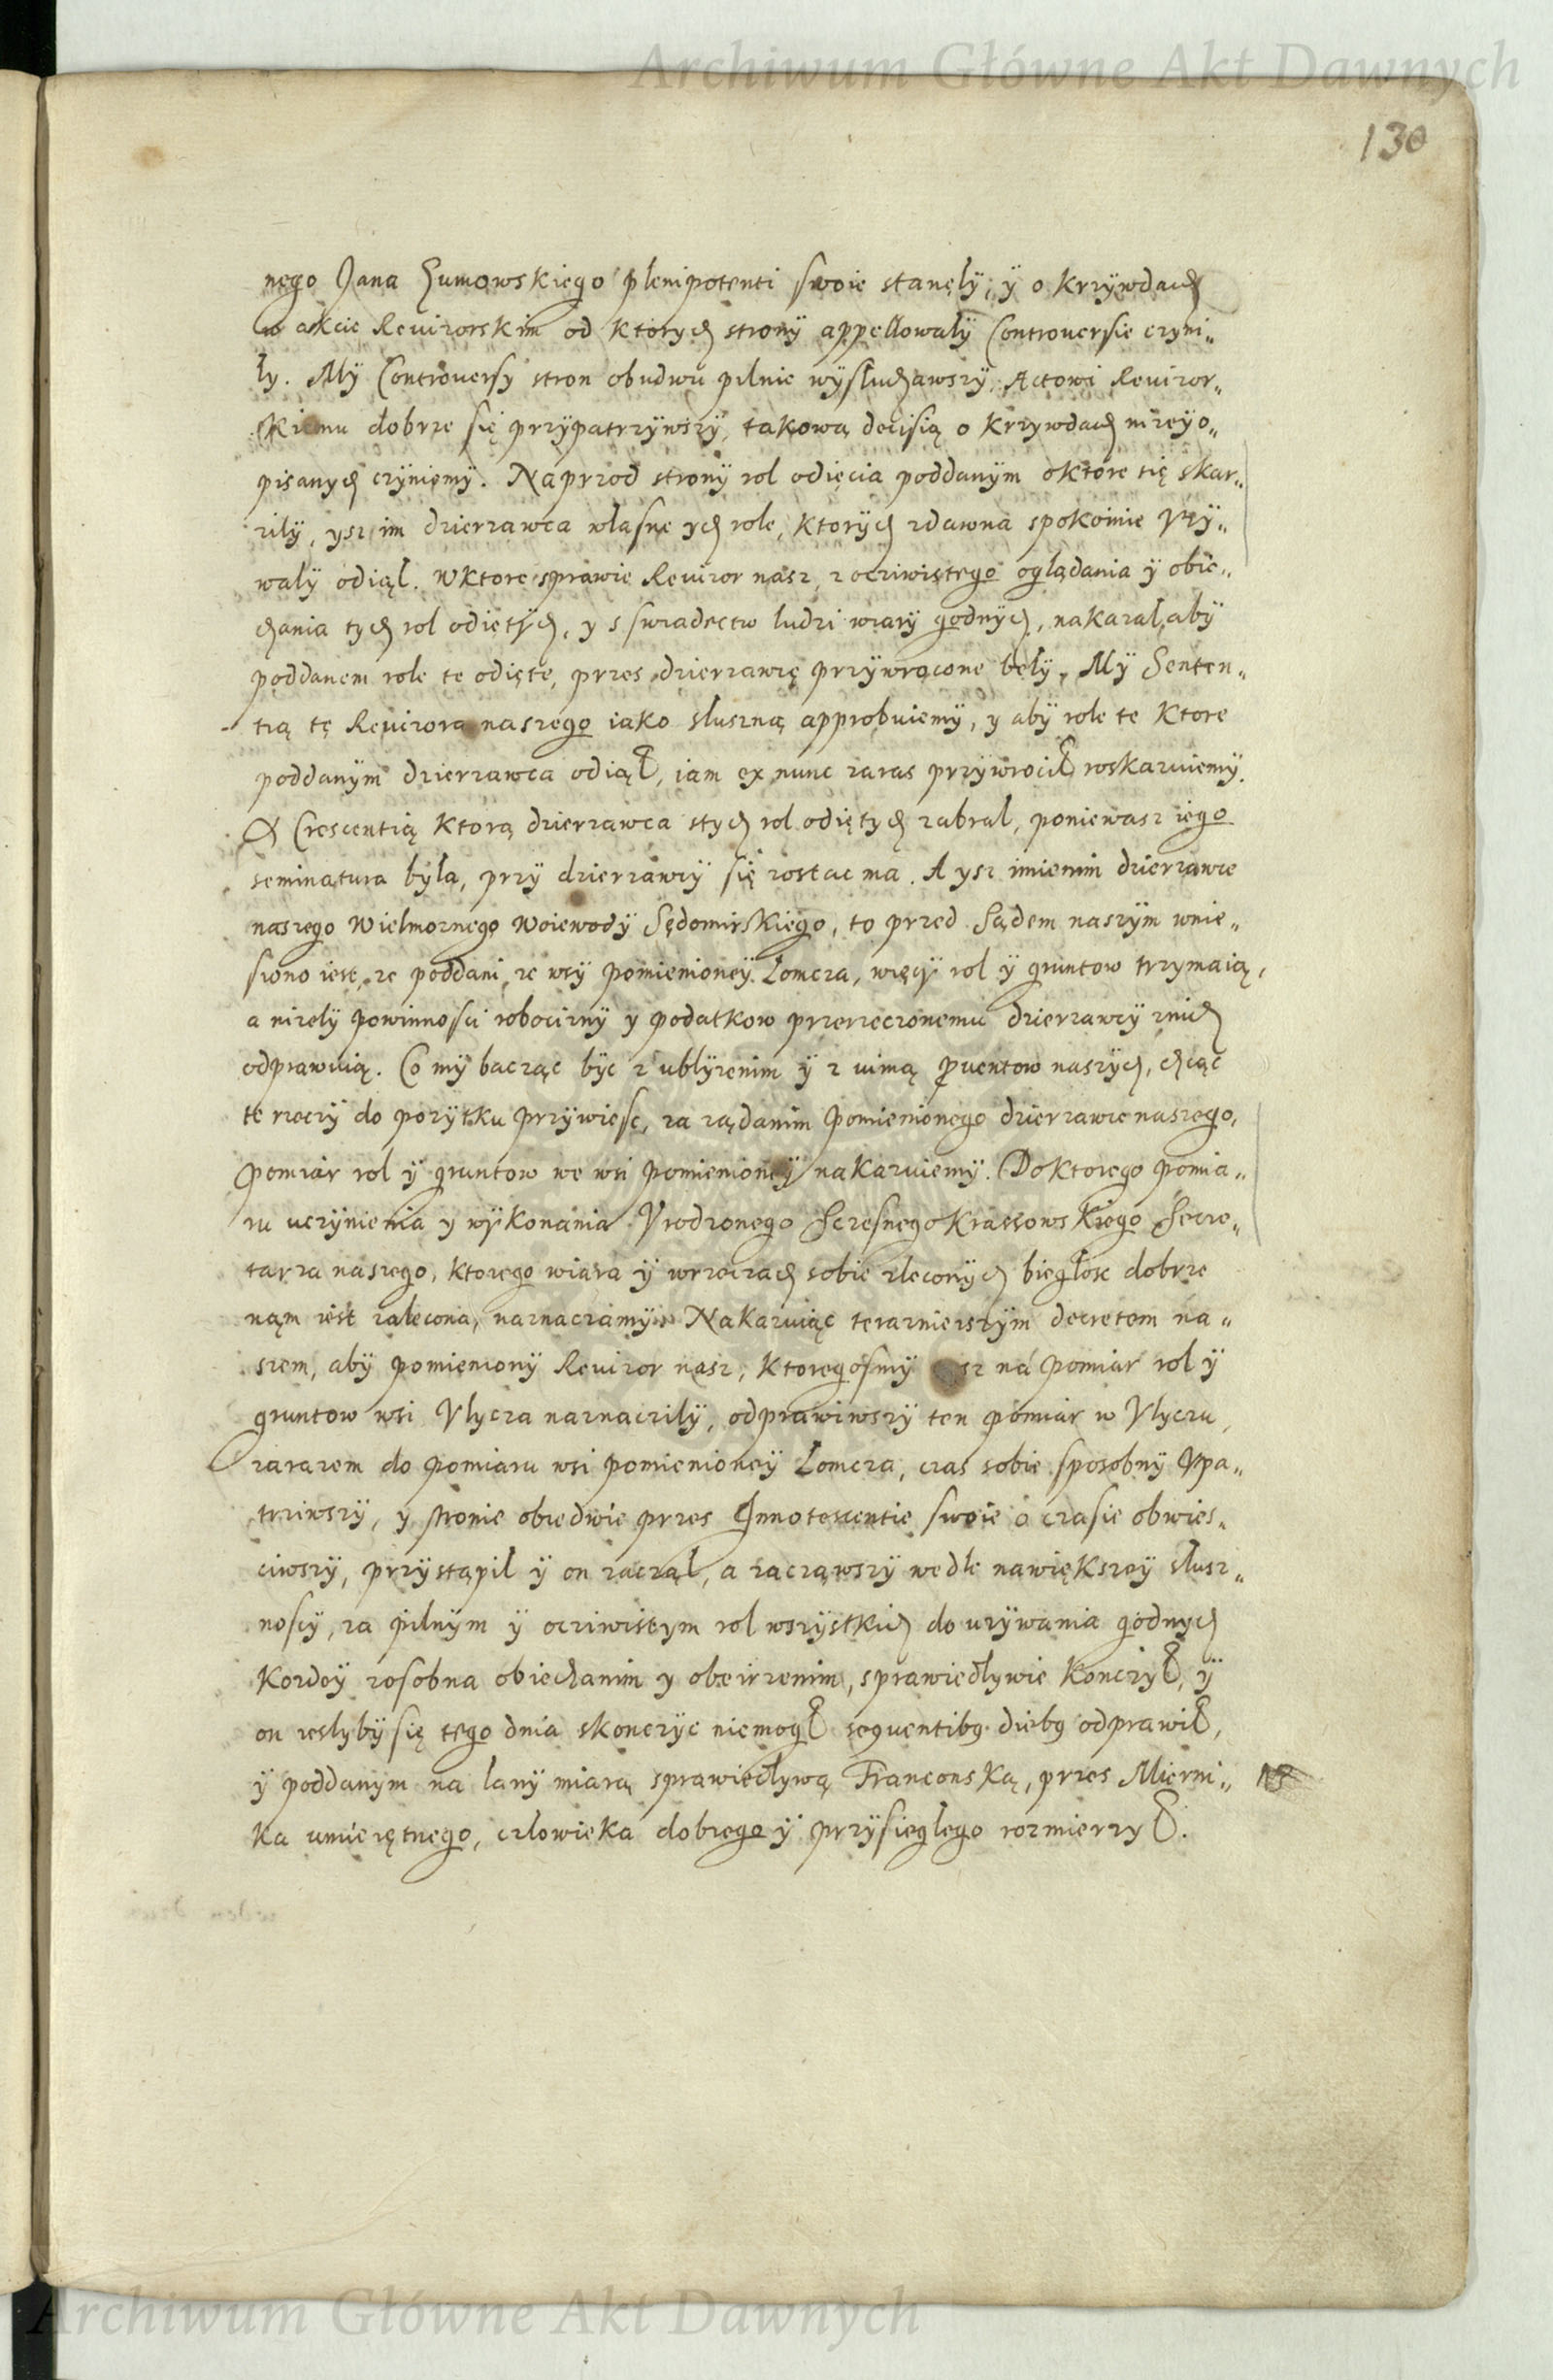 Archiwum Główne Akt Dawnych
130
nego Jana Zumowskiego plenipotenti swoie stanęly, ÿ o krzÿwdach
w akcie Revizorskim od ktorych stronÿ appellowalÿ Controversie czyni„
ly. Mÿ Controversy stron obudwu pilnie wÿsluchawszÿ, Actowi Revizor„
skiemu dobrze się przÿpatrzÿwszÿ, takową decisią o krzywdach nizeÿo„
pisanych czÿniemÿ. Naprzod stronÿ rol odięcia poddanÿm oktore się skar„
zilÿ, ysz im dzierzawca wlasne ych role, ktorÿch zdawna spokoinie Vzÿ„
walÿ odiąl. Wktore sprawie Revizor nasz, z ocziwistego oglądania ÿ obie„
chania tych rol odiętÿch, y s swiadectw ludzi wiarÿ godnÿch, nakazal, abÿ
poddanem role te odięte, przes dzierzawcę przÿwrocone belÿ. Mÿ Senten„
tią tę Revizora naszego iako sluszną approbuiemÿ, y abÿ role te ktore
poddanÿm dzierzawca odiął, iam ex nunc zaras przÿwrocił roskazuiemÿ.
A Crescentią ktorą dzierzawca stych rol odiętych zabral, poniewasz iego
seminatura była, przÿ dzierzawcÿ się zostac ma. A ysz imienim dzierzawce
naszego Wielmoznego Woiewodÿ Sędomirskiego, to przed Sądem naszÿm wnie„
siono iest, ze poddani ze wsÿ pomienioneÿ Lomcza, więcÿ rol ÿ gruntow trzymaią,
a nizelÿ powinnosci robociznÿ y podatkow przerzeczonemu dzierzawcÿ znich
odprawuią. Co mÿ bacząc bÿc z ublÿzenim ÿ z uimą pruentow naszÿch, chcąc
te rzeczÿ do pozÿtku przÿwiesc, za ządanim pomienionego dzierzawce naszego,
pomiar rol ÿ gruntow we wsi pomienioneÿ nakazuiemÿ. Do ktorego pomia„
ru uczÿnienia y wÿkonania Vrodzonego Sczesnego Krassowskiego Secre„
tarza naszego, ktorego wiara ÿ wrzeczach sobie zleconÿch biegłosc dobrze
nąm iest zalecona, naznaczamÿ. Nakazuiąc terazniejszÿm decretem na„
szem, abÿ pomienionÿ Revizor nasz, ktoregosmÿ sz ná pomiar rol ÿ
gruntow wsi Vlycza naznaczilÿ, odprawiwszÿ ten pomiar w Vlyczu,
zarazem do pomiaru wsi pomienioneÿ Lomcza, czas sobie sposobnÿ Vpa„
trziwszÿ, y stronie obiedwie przes Innotescentie swoie o czasie obwies„
ciwszÿ, przÿstąpil ÿ on zacząl, a zacząwszÿ wedle nawiększeÿ słusz„
noscÿ, za pilnÿm ÿ ocziwistym rol wszÿstkich do uzÿwania godnych
kozdeÿ zosobna obiechanim y obeirzenim, sprawiedlywie konczył, ÿ
on ieslybÿ się tego dnia skonczÿc niemogł sequentibus diebus odprawił,
ÿ poddanÿm na lanÿ miarą sprawiedlywą Franconską, przes Mierni„
ka umieiętnego, człowieka dobrego ÿ przÿsieglego rozmierzył.
Archiwum Główne Akt Dawnych